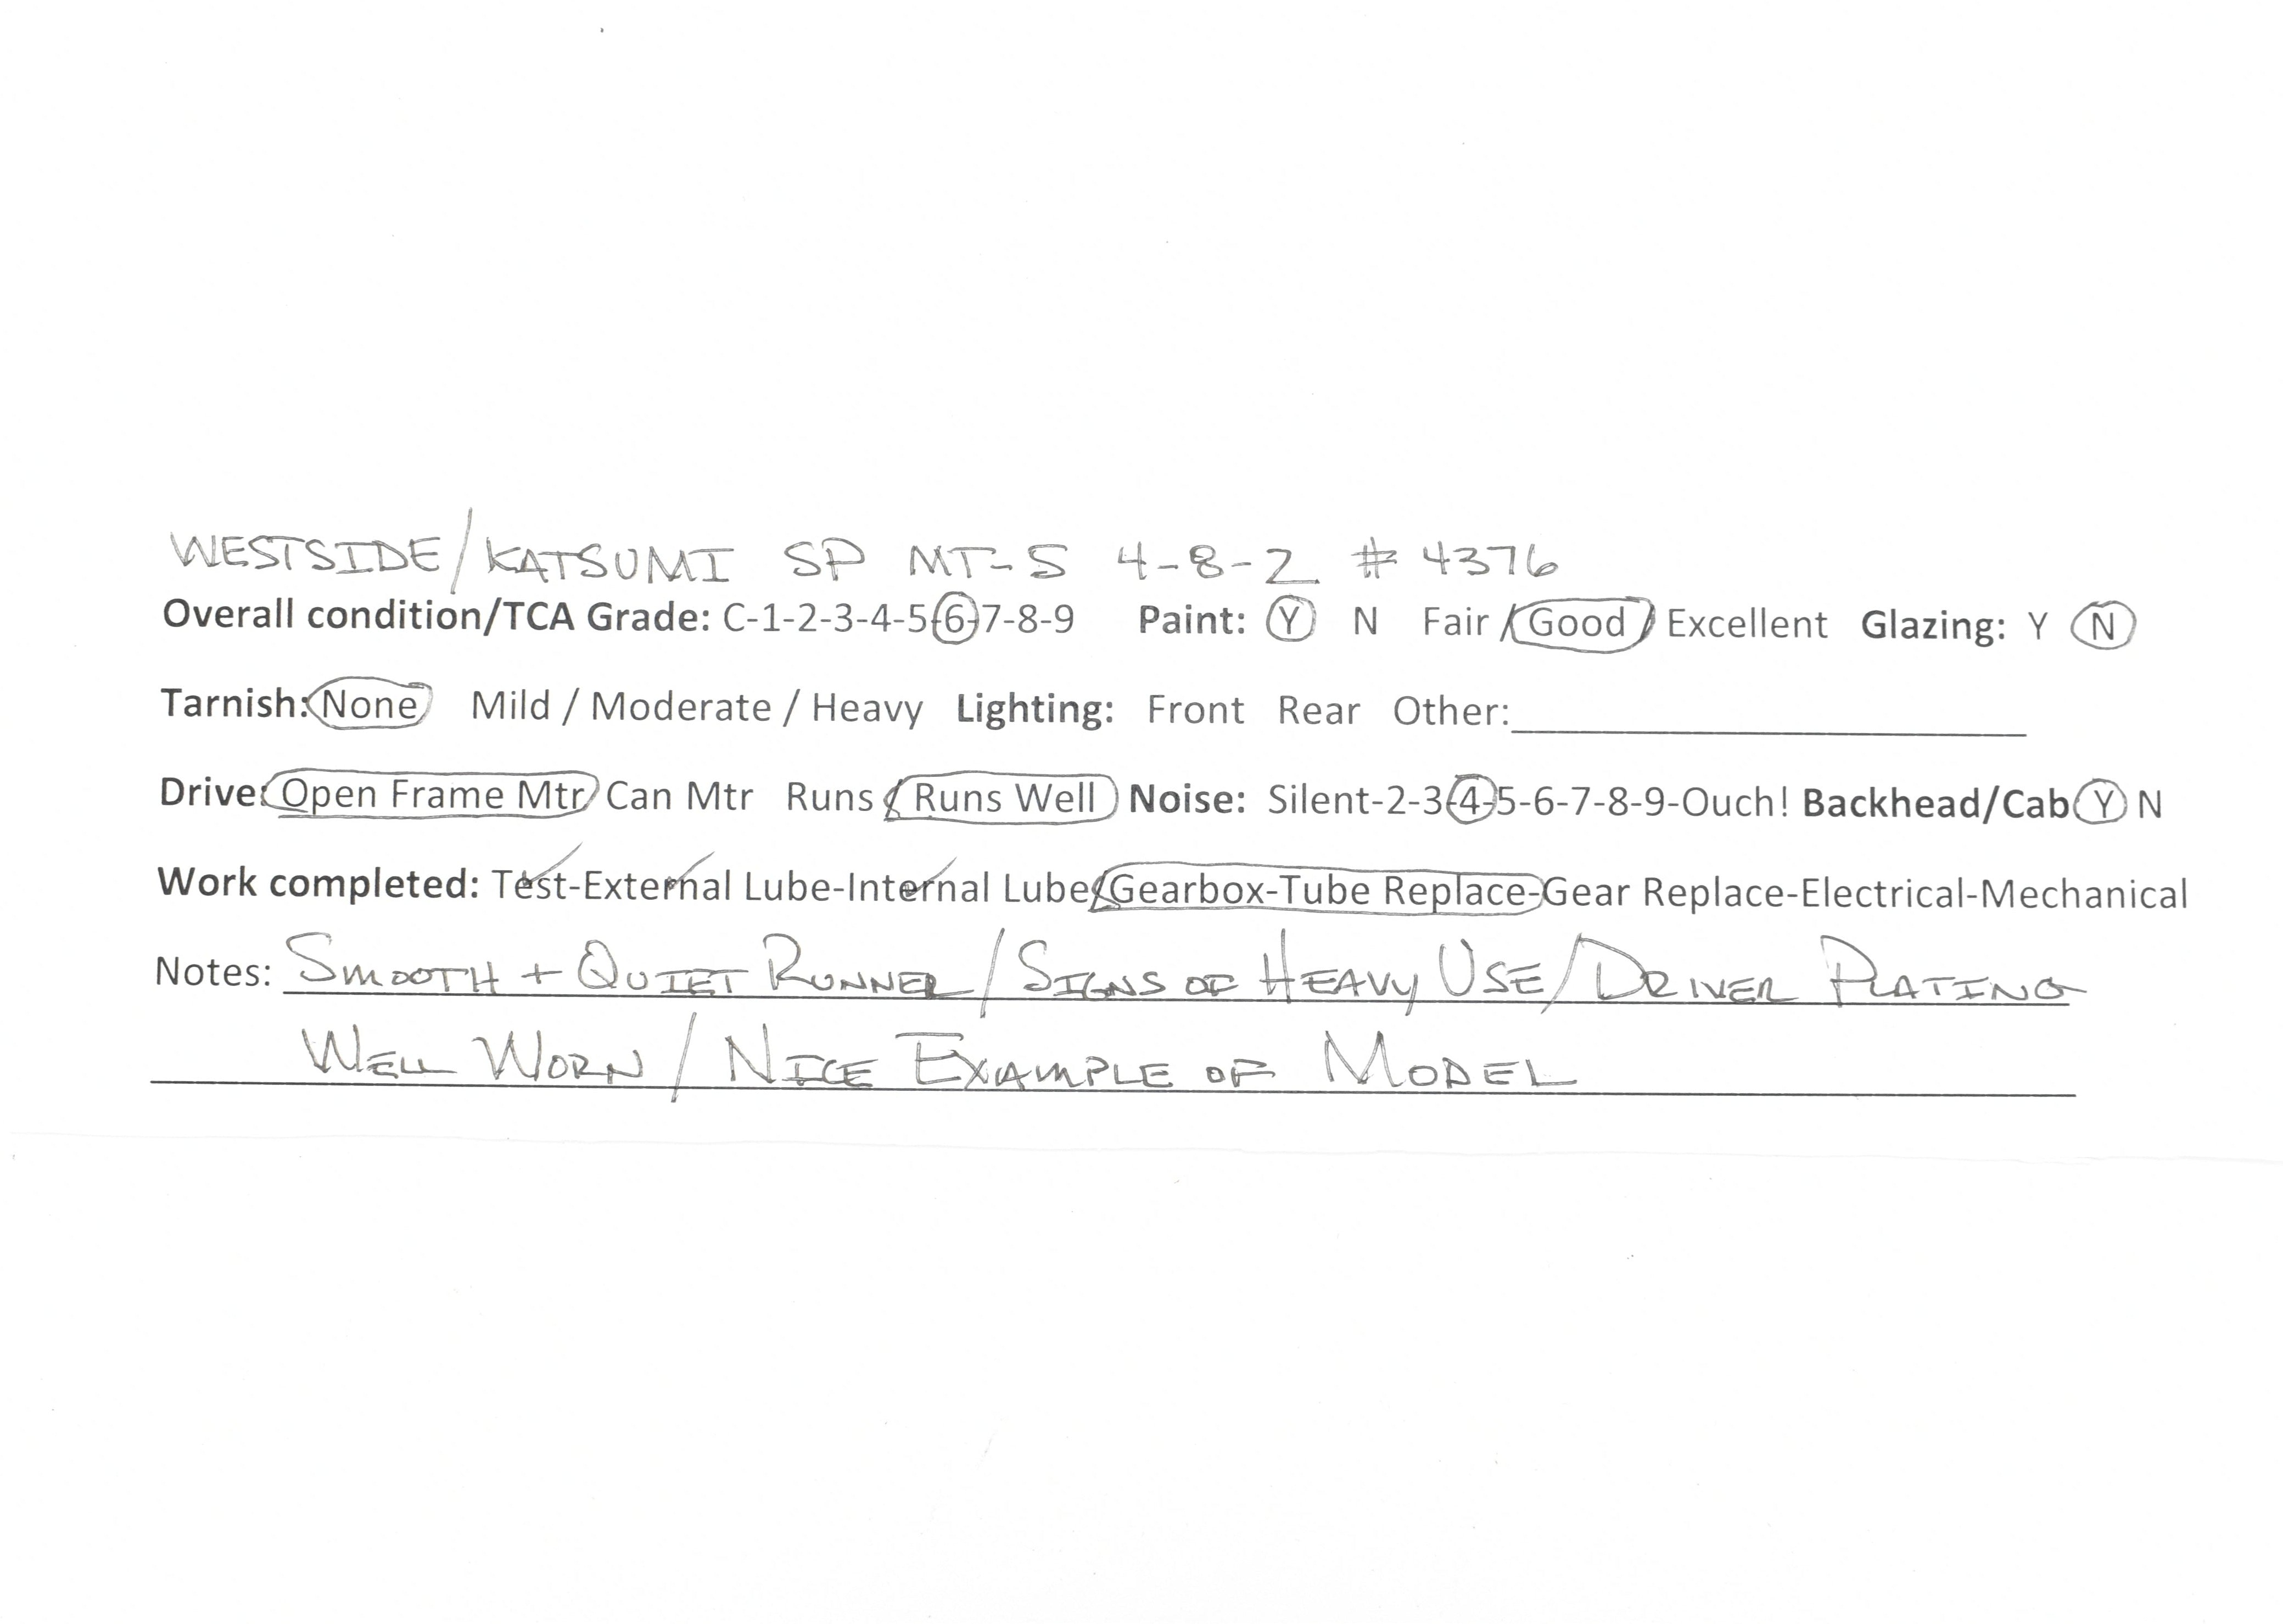 WESTSIDE/KATSUMI SP MT-5 4-8-2 # 4376
Overall condition/TCA Grade: C-1-2-3-4-5-6-7-8-9 Paint: Y N Fair / Good / Excellent Glazing: Y N
Tarnish: None Mild / Moderate / Heavy Lighting: Front Rear Other:
Drive: Open Frame Mtr Can Mtr Runs / Runs Well Noise: Silent-2-3-4-5-6-7-8-9-Ouch! Backhead/Cab Y N
Work completed: Test-External Lube-Internal Lube-Gearbox-Tube Replace-Gear Replace-Electrical-Mechanical
Notes: SMOOTH + QUIET RUNNER/SIGNS OF HEAVY USE/DRIVER PLATING
WELL WORN/NICE EXAMPLE OF MODEL